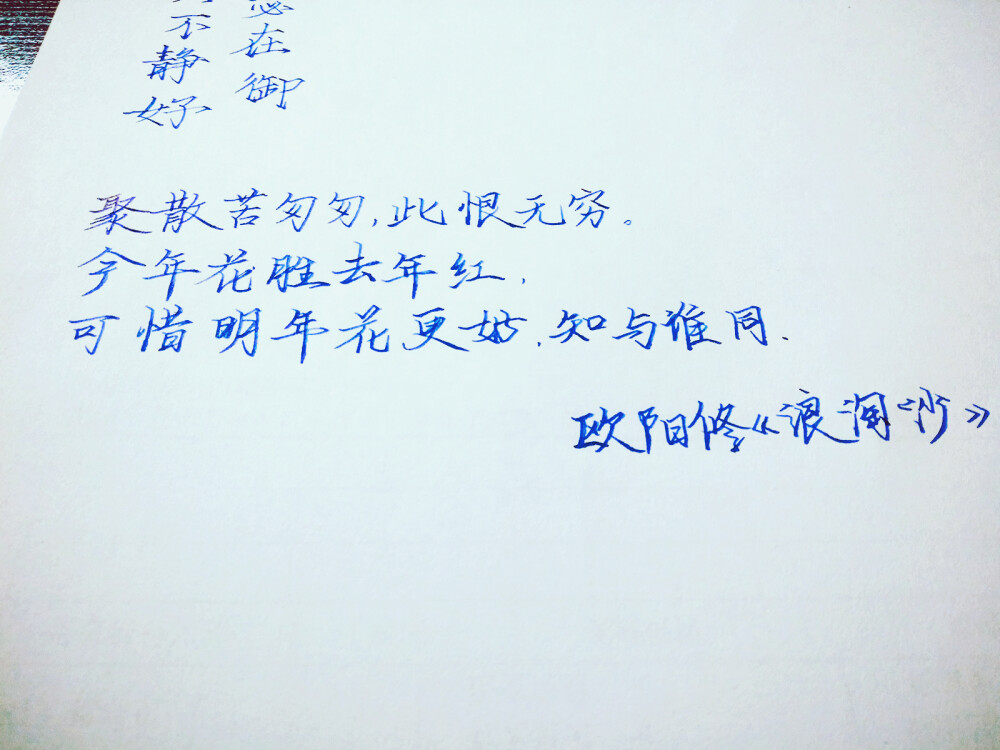 瑟在御
不静好
聚散苦匆匆,此恨无穷。
今年花胜去年红.
可惜明年花更好.知与谁同.
欧阳修《浪淘沙》